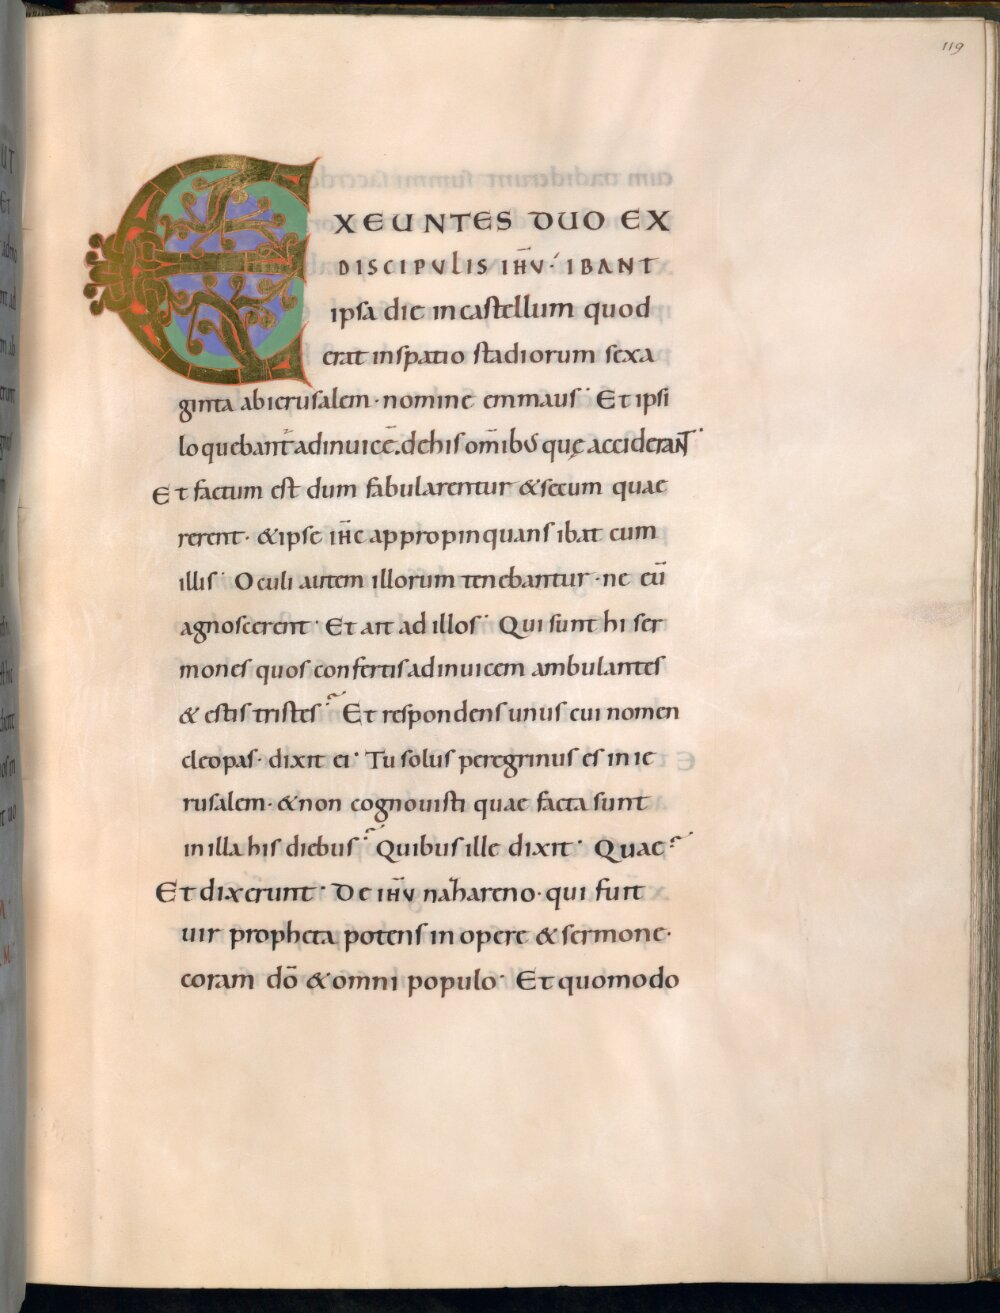 119
EXEUNTES DUO EX
DISCIPULIS IHV̄· IBANT
ipsa die in castellum quod
erat in spatio stadiorum sexa
ginta ab ierusalem· nomine emmaus· Et ipsi
loquebant̄ adinuicē. de his om̄ibus quę acciderant·
Et factum est dum fabularentur & secum quae
rerent· & ipse ih̄c appropinquans ibat cum
illis· Oculi autem illorum tenebantur· ne eū
agnoscerent· Et ait ad illos· Qui sunt hi ser
mones quos confertis adinuicem ambulantes
& estis tristes? Et respondens unus cui nomen
cleopas· dixit ei· Tu solus peregrinus es in ie
rusalem· & non cognouisti quae facta sunt
in illa his diebus? Quibus ille dixit· Quae?
Et dixerunt· De ihv̄ nazareno· qui fuit
uir propheta potens in opere & sermone·
coram dō & omni populo· Et quomodo